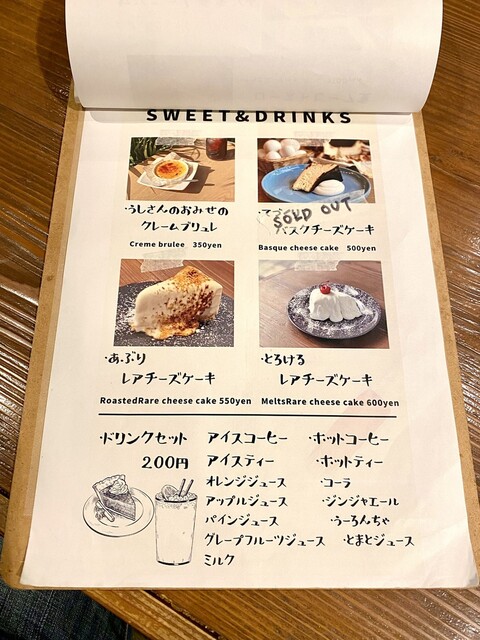 SWEET&DRINKS
・うしさんのおみせの
クレームブリュレ
Creme brulee 350yen
SOLD OUT
バスクチーズケーキ
Basque cheese cake 500yen
・あぶり
レアチーズケーキ
RoastedRare cheese cake 550yen
・とろける
レアチーズケーキ
MeltsRare cheese cake 600yen
・ドリンクセット
200円
アイスコーヒー ・ホットコーヒー
アイスティー ・ホットティー
オレンジジュース ・コーラ
アップルジュース ・ジンジャエール
パインジュース ・うーろんちゃ
グレープフルーツジュース ・とまとジュース
ミルク